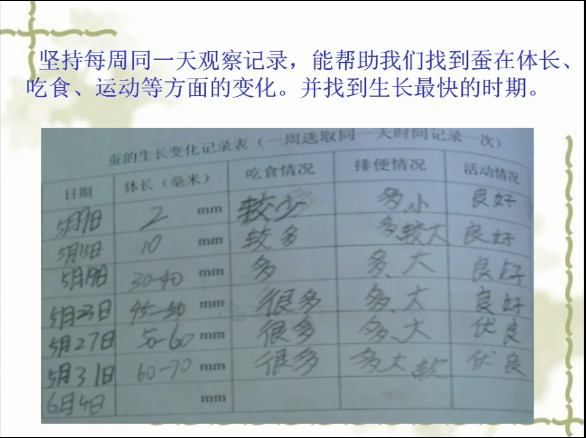 坚持每周同一天观察记录，能帮助我们找到蚕在体长、
吃食、运动等方面的变化。并找到生长最快的时期。
蚕的生长变化记录表（一周选取同一天时间记录一次）
日期 体长（毫米） 吃食情况 排便情况 活动情况
2 mm 较少 多、小 良好
5月15日 10 mm 较多 多较大 良好
5月19日 30-40 mm 多 多、大 良好
5月23日 45-50 mm 很多 多、大 良好
5月27日 50-60 mm 很多 多、大 优良
5月31日 60-70 mm 很多 多大软 优良
6月4日 mm